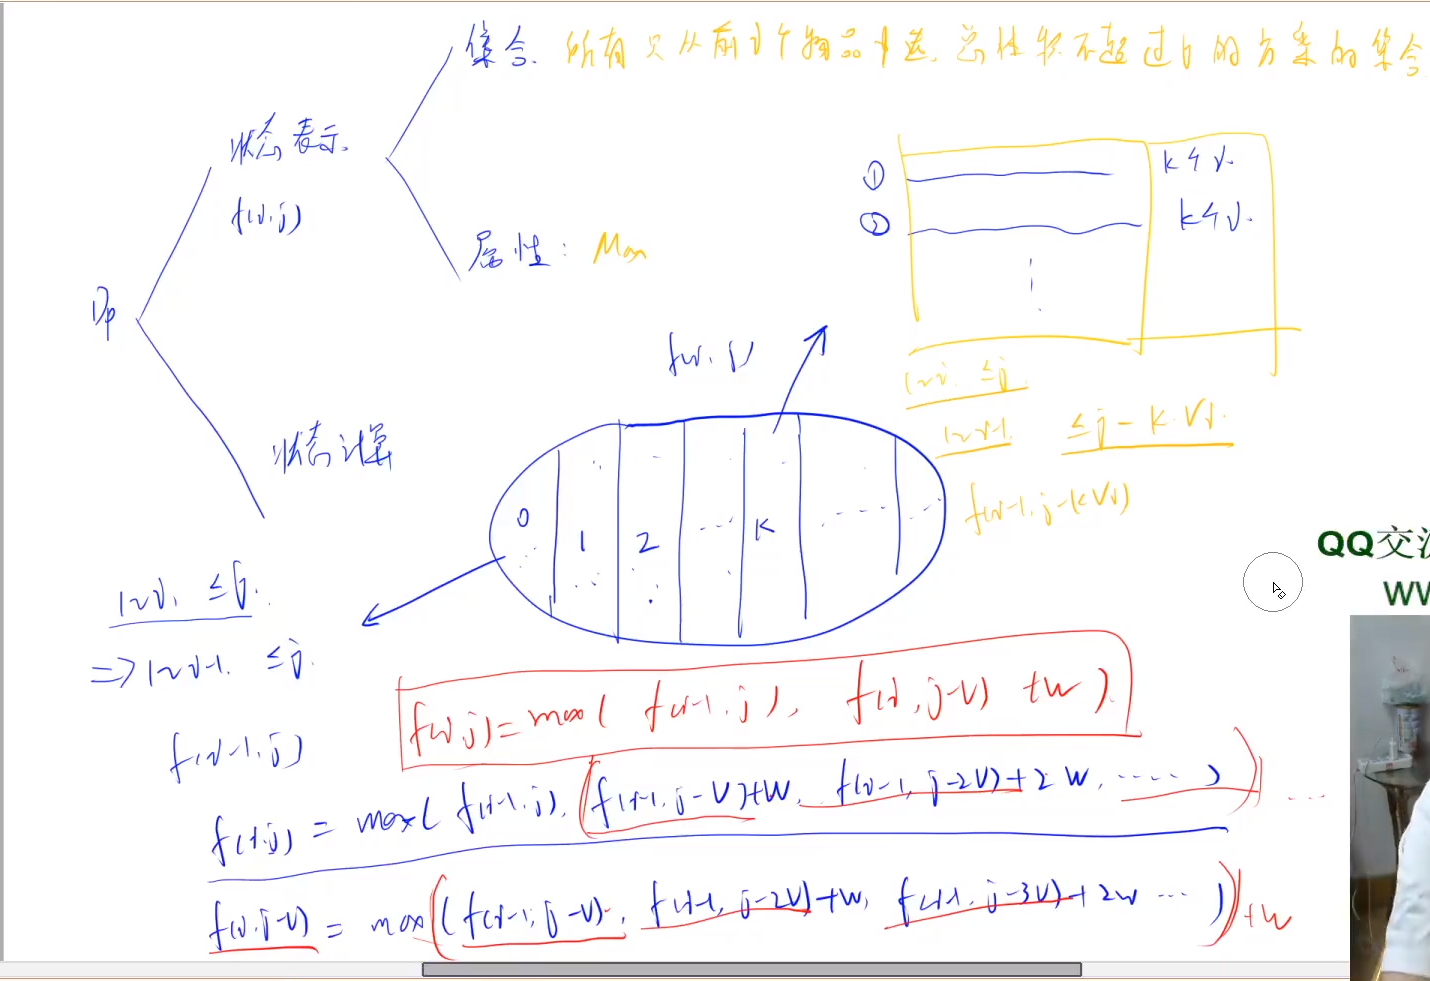 集合. 所有只从前i个物品中选, 总体积不超过j的方案的集合
状态表示.
f(i,j)
属性: Max
DP
① k个i.
② k个i.
f(i,j)
1~i. ≤j
1~i-1. ≤j-k·Vi.
f(i-1, j-kVi)
状态计算
0 1 2 ... K ...
QQ交
1~i, ≤j.
=> 1~i-1. ≤j.
f(i-1, j)
f(i,j) = max( f(i-1,j), f(i,j-V) +W ).
f(i,j) = max( f(i-1,j), f(i-1,j-V)+W, f(i-1,j-2V)+2W, ..... ) ...
f(i,j-V) = max( f(i-1,j-V), f(i-1,j-2V)+W, f(i-1,j-3V)+2W ... ) +W